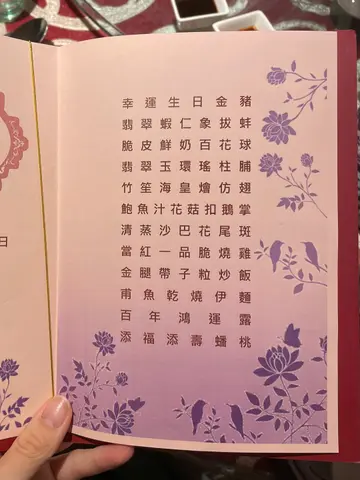 日
幸運生日金豬
翡翠蝦仁象拔蚌
脆皮鮮奶百花球
翡翠玉環瑤柱脯
竹笙海皇燴仿翅
鮑魚汁花菇扣鵝掌
清蒸沙巴花尾斑
當紅一品脆燒雞
金腿帶子粒炒飯
甫魚乾燒伊麵
百年鴻運露
添福添壽蟠桃